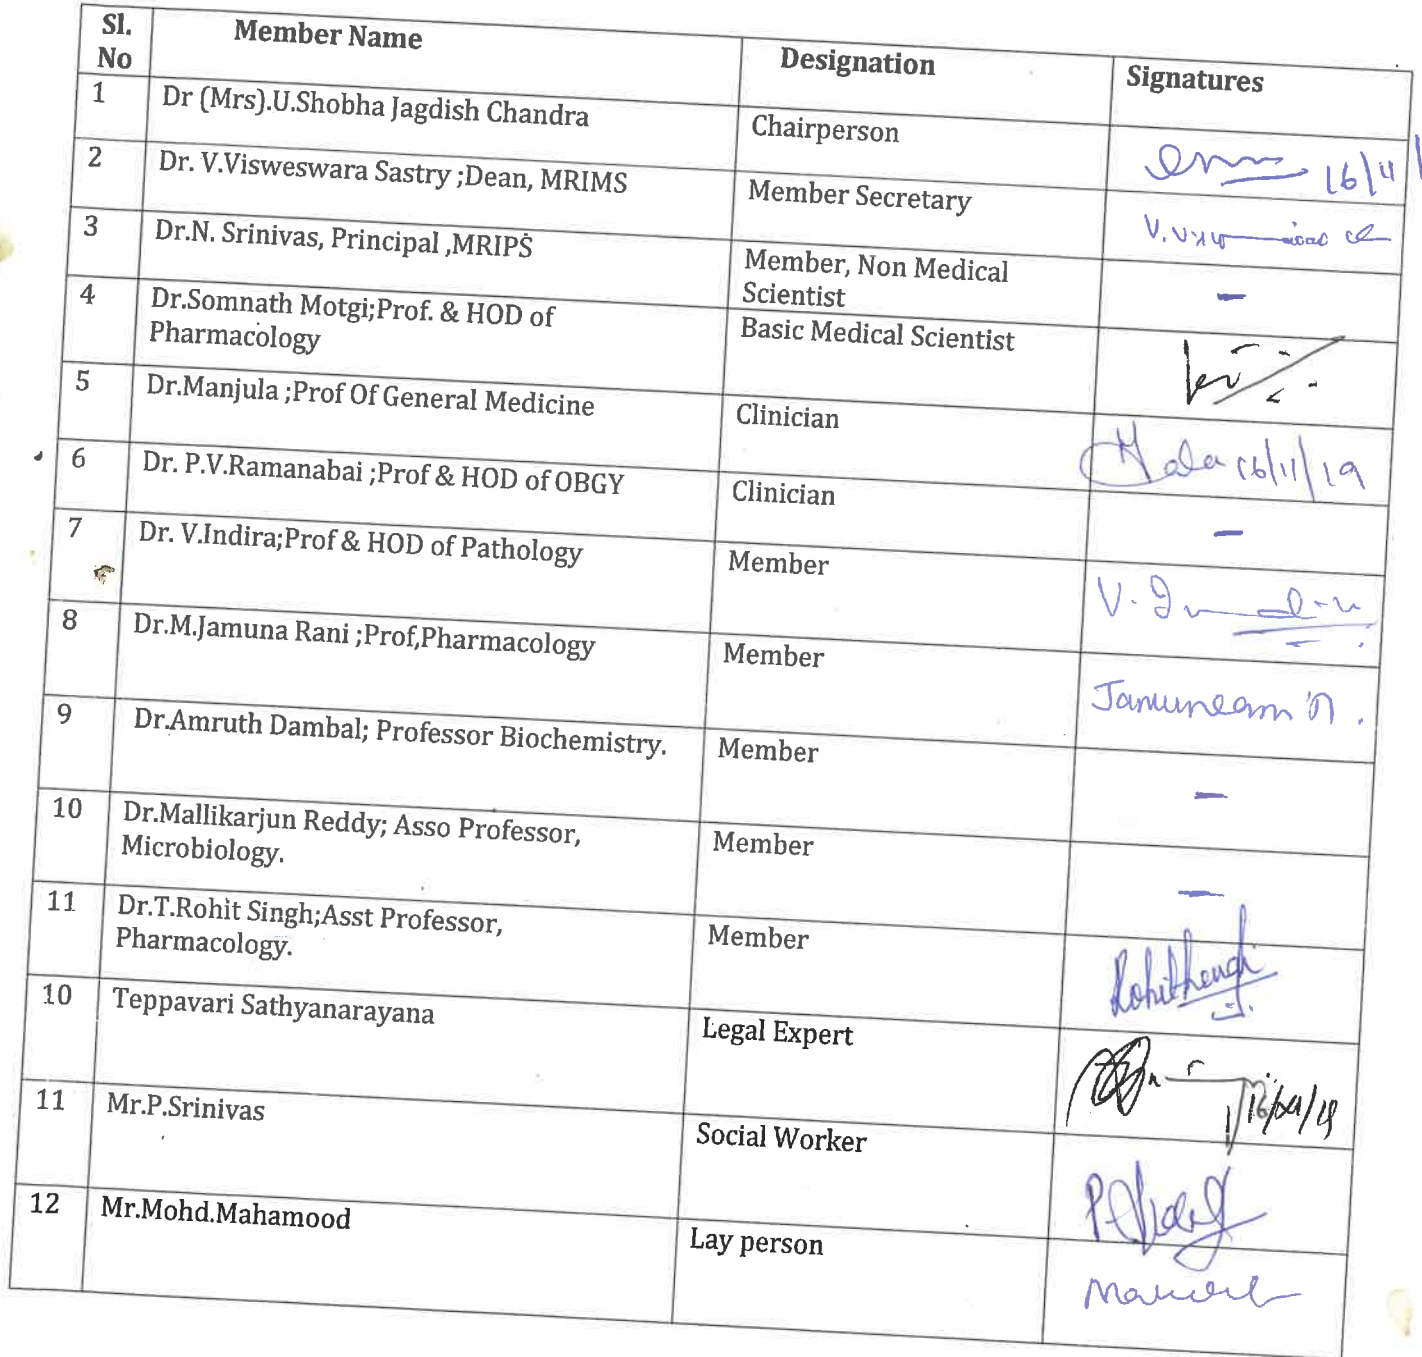 Sl. No Member Name Designation Signatures
1 Dr (Mrs).U.Shobha Jagdish Chandra Chairperson 16/11/
2 Dr. V.Visweswara Sastry ;Dean, MRIMS Member Secretary
3 Dr.N. Srinivas, Principal ,MRIPS Member, Non Medical
Scientist –
4 Dr.Somnath Motgi;Prof. & HOD of Basic Medical Scientist
Pharmacology
5 Dr.Manjula ;Prof Of General Medicine Clinician 16/11/19
6 Dr. P.V.Ramanabai ;Prof & HOD of OBGY Clinician –
7 Dr. V.Indira;Prof & HOD of Pathology Member
8 Dr.M.Jamuna Rani ;Prof,Pharmacology Member
9 Dr.Amruth Dambal; Professor Biochemistry. Member –
10 Dr.Mallikarjun Reddy; Asso Professor, Member
Microbiology. –
11 Dr.T.Rohit Singh;Asst Professor, Member
Pharmacology.
10 Teppavari Sathyanarayana Legal Expert
11 Mr.P.Srinivas Social Worker
12 Mr.Mohd.Mahamood Lay person